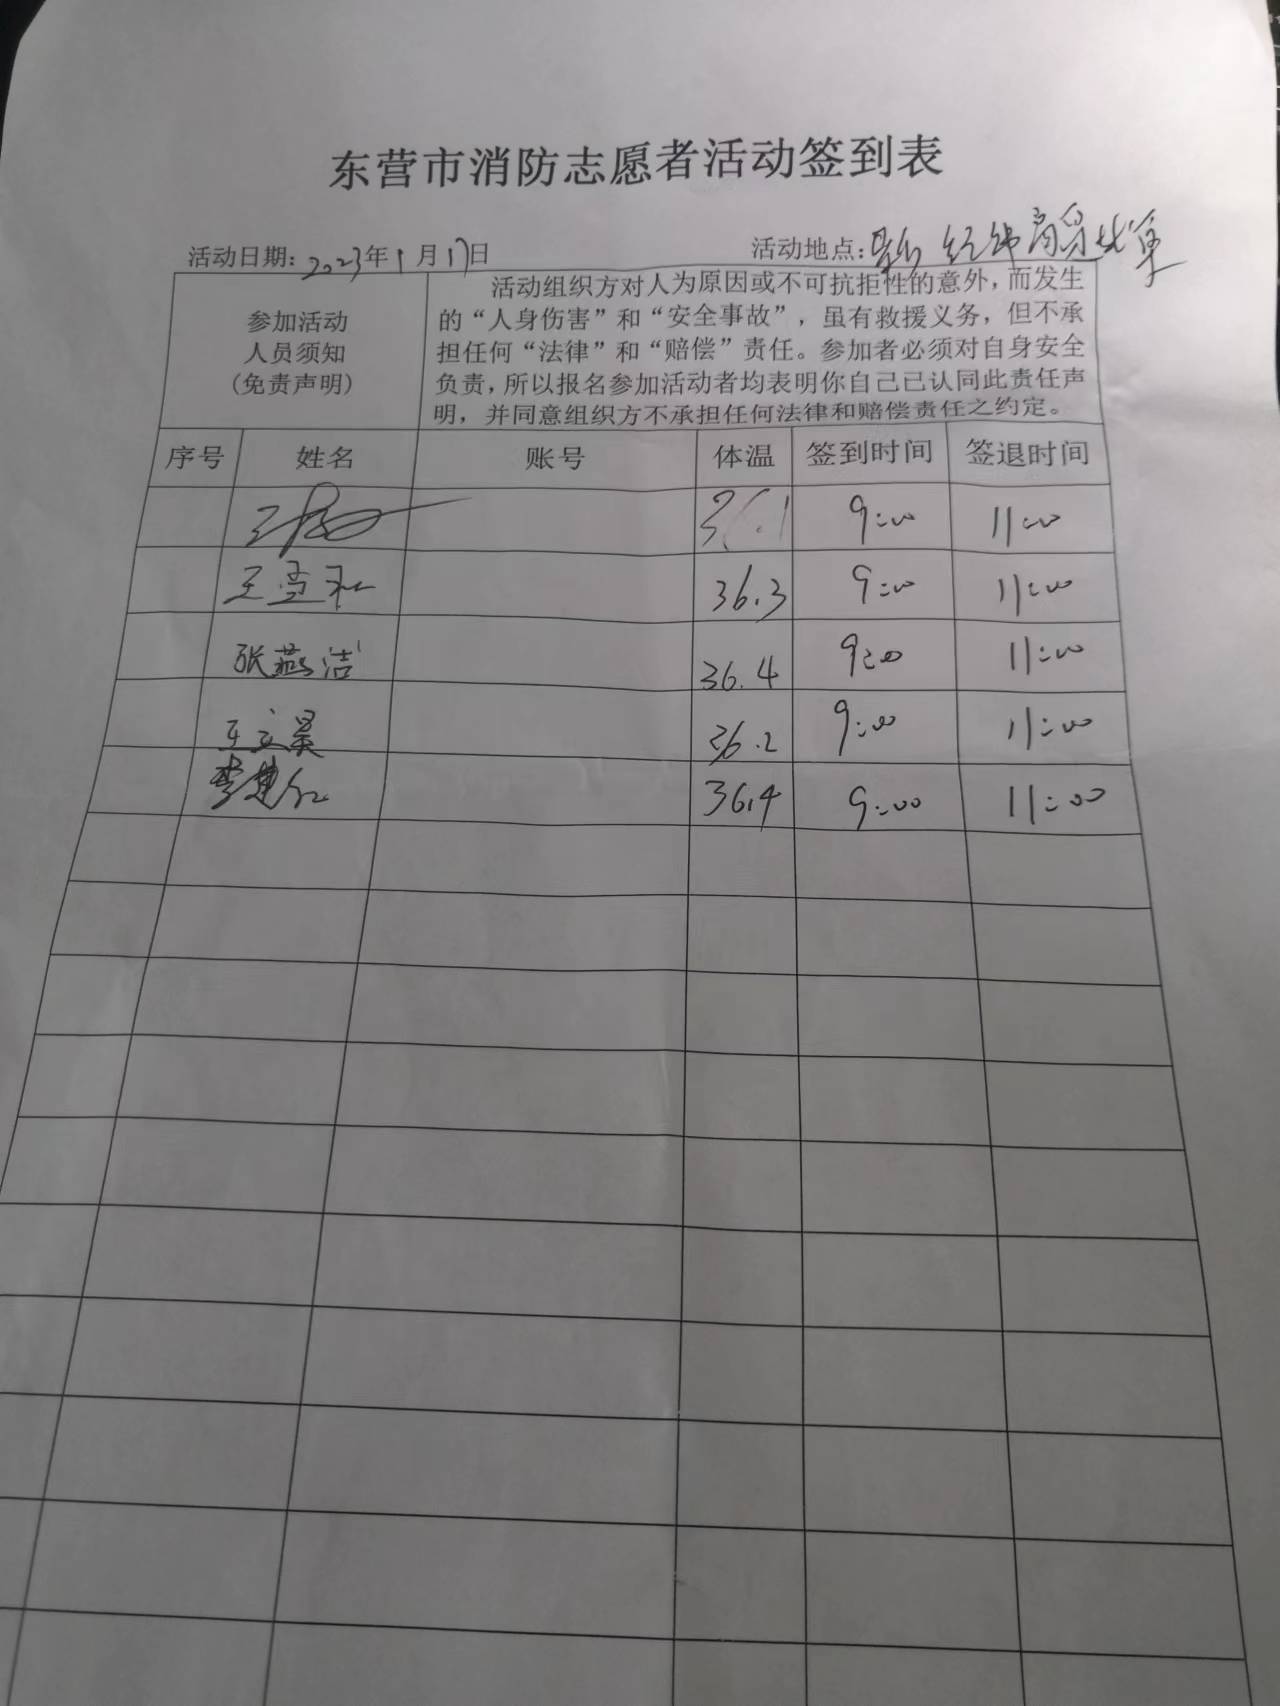 东营市消防志愿者活动签到表
活动日期:2023年1月17日 活动地点: 经纬
参加活动
人员须知
(免责声明)
活动组织方对人为原因或不可抗拒性的意外,而发生
的“人身伤害”和“安全事故”,虽有救援义务,但不承
担任何“法律”和“赔偿”责任。参加者必须对自身安全
负责,所以报名参加活动者均表明你自己已认同此责任声
明,并同意组织方不承担任何法律和赔偿责任之约定。
序号 姓名 账号 体温 签到时间 签退时间
36.1 9:00 11:00
36.3 9:00 11:00
张燕洁 36.4 9:00 11:00
王文昊 36.2 9:00 11:00
李建红 36.4 9:00 11:00